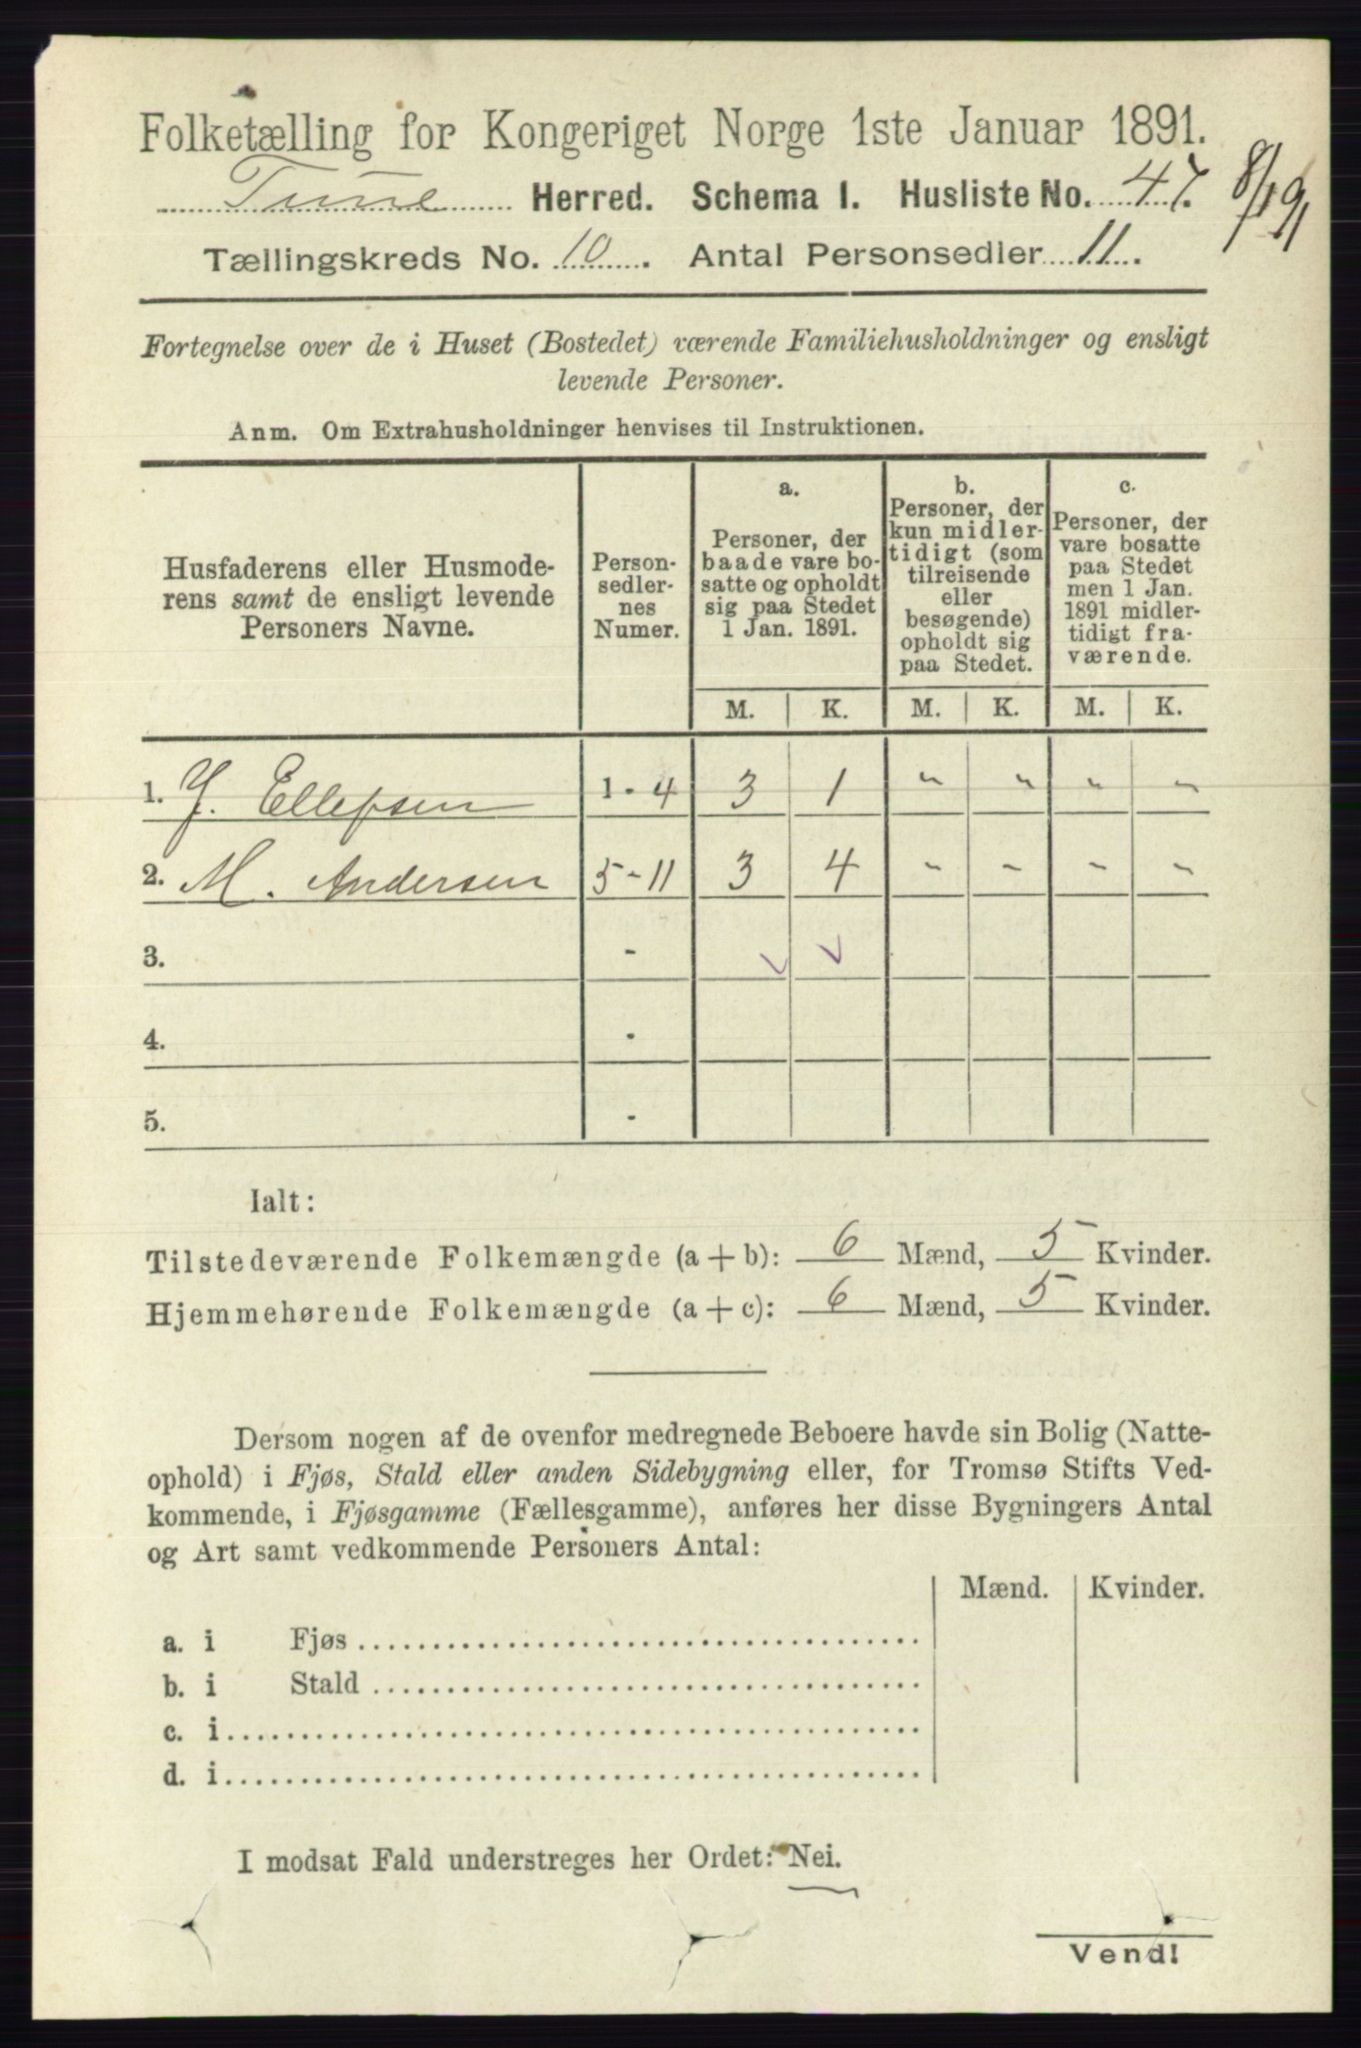 Folketælling for Kongeriget Norge 1ste Januar 1891.
Tune Herred. Schema I. Husliste No. 47. 8/1 91
Tællingskreds No. 10. Antal Personsedler 11.
Fortegnelse over de i Huset (Bostedet) værende Familiehusholdninger og ensligt
levende Personer.
Anm. Om Extrahusholdninger henvises til Instruktionen.
Husfaderens eller Husmode-
rens samt de ensligt levende
Personers Navne.
Person-
sedler-
nes
Numer.
a.
Personer, der
baade vare bo-
satte og opholdt
sig paa Stedet
1 Jan. 1891.
b.
Personer, der
kun midler-
tidigt (som
tilreisende
eller
besøgende)
opholdt sig
paa Stedet.
c.
Personer, der
vare bosatte
paa Stedet
men 1 Jan.
1891 midler-
tidigt fra-
værende.
M. K. M. K. M. K.
1. J. Ellefsen 1-4 3 1 " " " "
2. M. Andersen 5-11 3 4 - - - -
3. -
4. -
5. -
Ialt:
Tilstedeværende Folkemængde (a + b): 6 Mænd, 5 Kvinder.
Hjemmehørende Folkemængde (a + c): 6 Mænd, 5 Kvinder.
Dersom nogen af de ovenfor medregnede Beboere havde sin Bolig (Natte-
ophold) i Fjøs, Stald eller anden Sidebygning eller, for Tromsø Stifts Ved-
kommende, i Fjøsgamme (Fællesgamme), anføres her disse Bygningers Antal
og Art samt vedkommende Personers Antal:
Mænd. Kvinder.
a. i Fjøs
b. i Stald
c. i
d. i
I modsat Fald understreges her Ordet: Nei.
Vend!